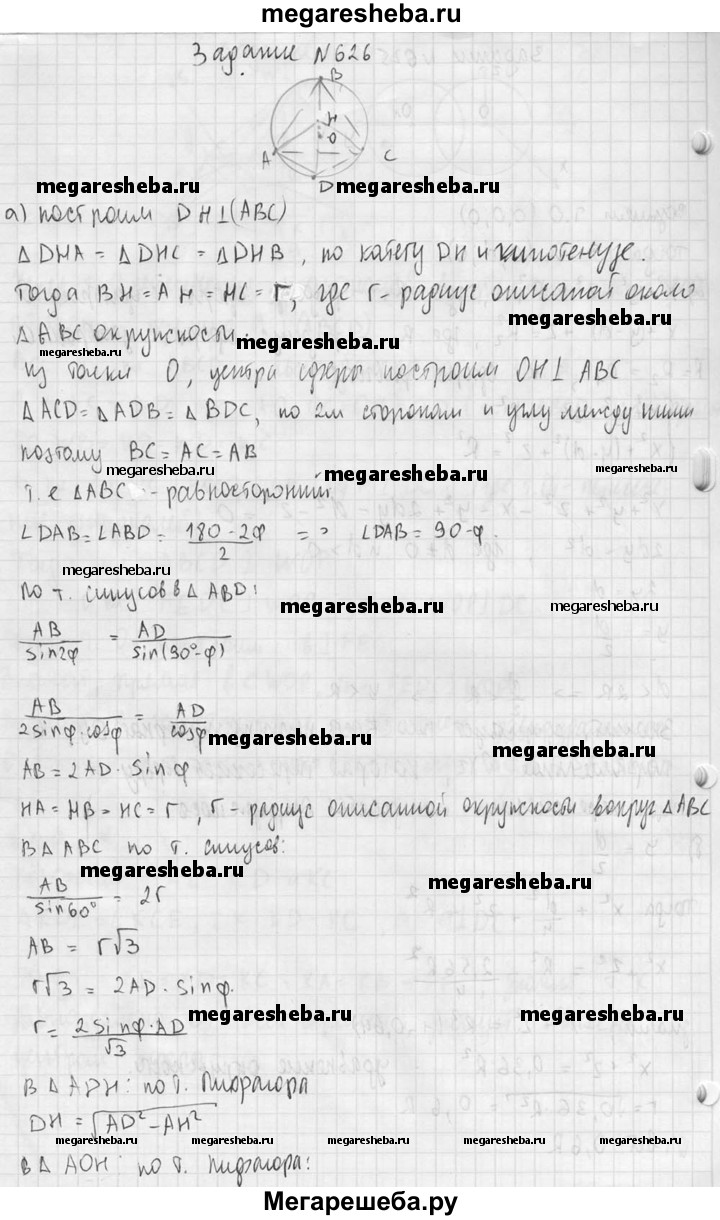 megaresheba.ru
Задание N626
B
H
O
A
C
D
megaresheba.ru megaresheba.ru
а) построим DH⊥(ABC)
ΔDHA = ΔDHC = ΔDHB, по катету DH и гипотенузе.
Тогда BH = AH = HC = r, где r - радиус описаной около
megaresheba.ru
ΔABC окружности.
megaresheba.ru
Из точки O, центра сферы построим OH⊥ABC
ΔACD = ΔADB = ΔBDC, по 2м сторонам и углу между ними
поэтому BC = AC = AB
megaresheba.ru megaresheba.ru megaresheba.ru
т.е ΔABC - равносторонний
∠DAB = ∠ABD = (180 - 2φ)/2 => ∠DAB = 90-φ.
megaresheba.ru
по т. синусов в ΔABD:
megaresheba.ru megaresheba.ru
AB/sin2φ = AD/sin(90°-φ)
AB/2sinφ·cosφ = AD/cosφ
megaresheba.ru
megaresheba.ru
AB = 2AD·sinφ
HA = HB = HC = r, r - радиус описанной окружносы вокруг ΔABC
В ΔABC по т. синусов:
megaresheba.ru
megaresheba.ru
AB/sin60° = 2r
AB = r√3
r√3 = 2AD·sinφ.
megaresheba.ru megaresheba.ru
r = 2sinφ·AD/√3
В ΔADH: по т. Пифагора
DH = √AD² - AH²
megaresheba.ru megaresheba.ru megaresheba.ru megaresheba.ru megaresheba.ru
в Δ AOH по т. Пифагора:
Мегарешеба.ру